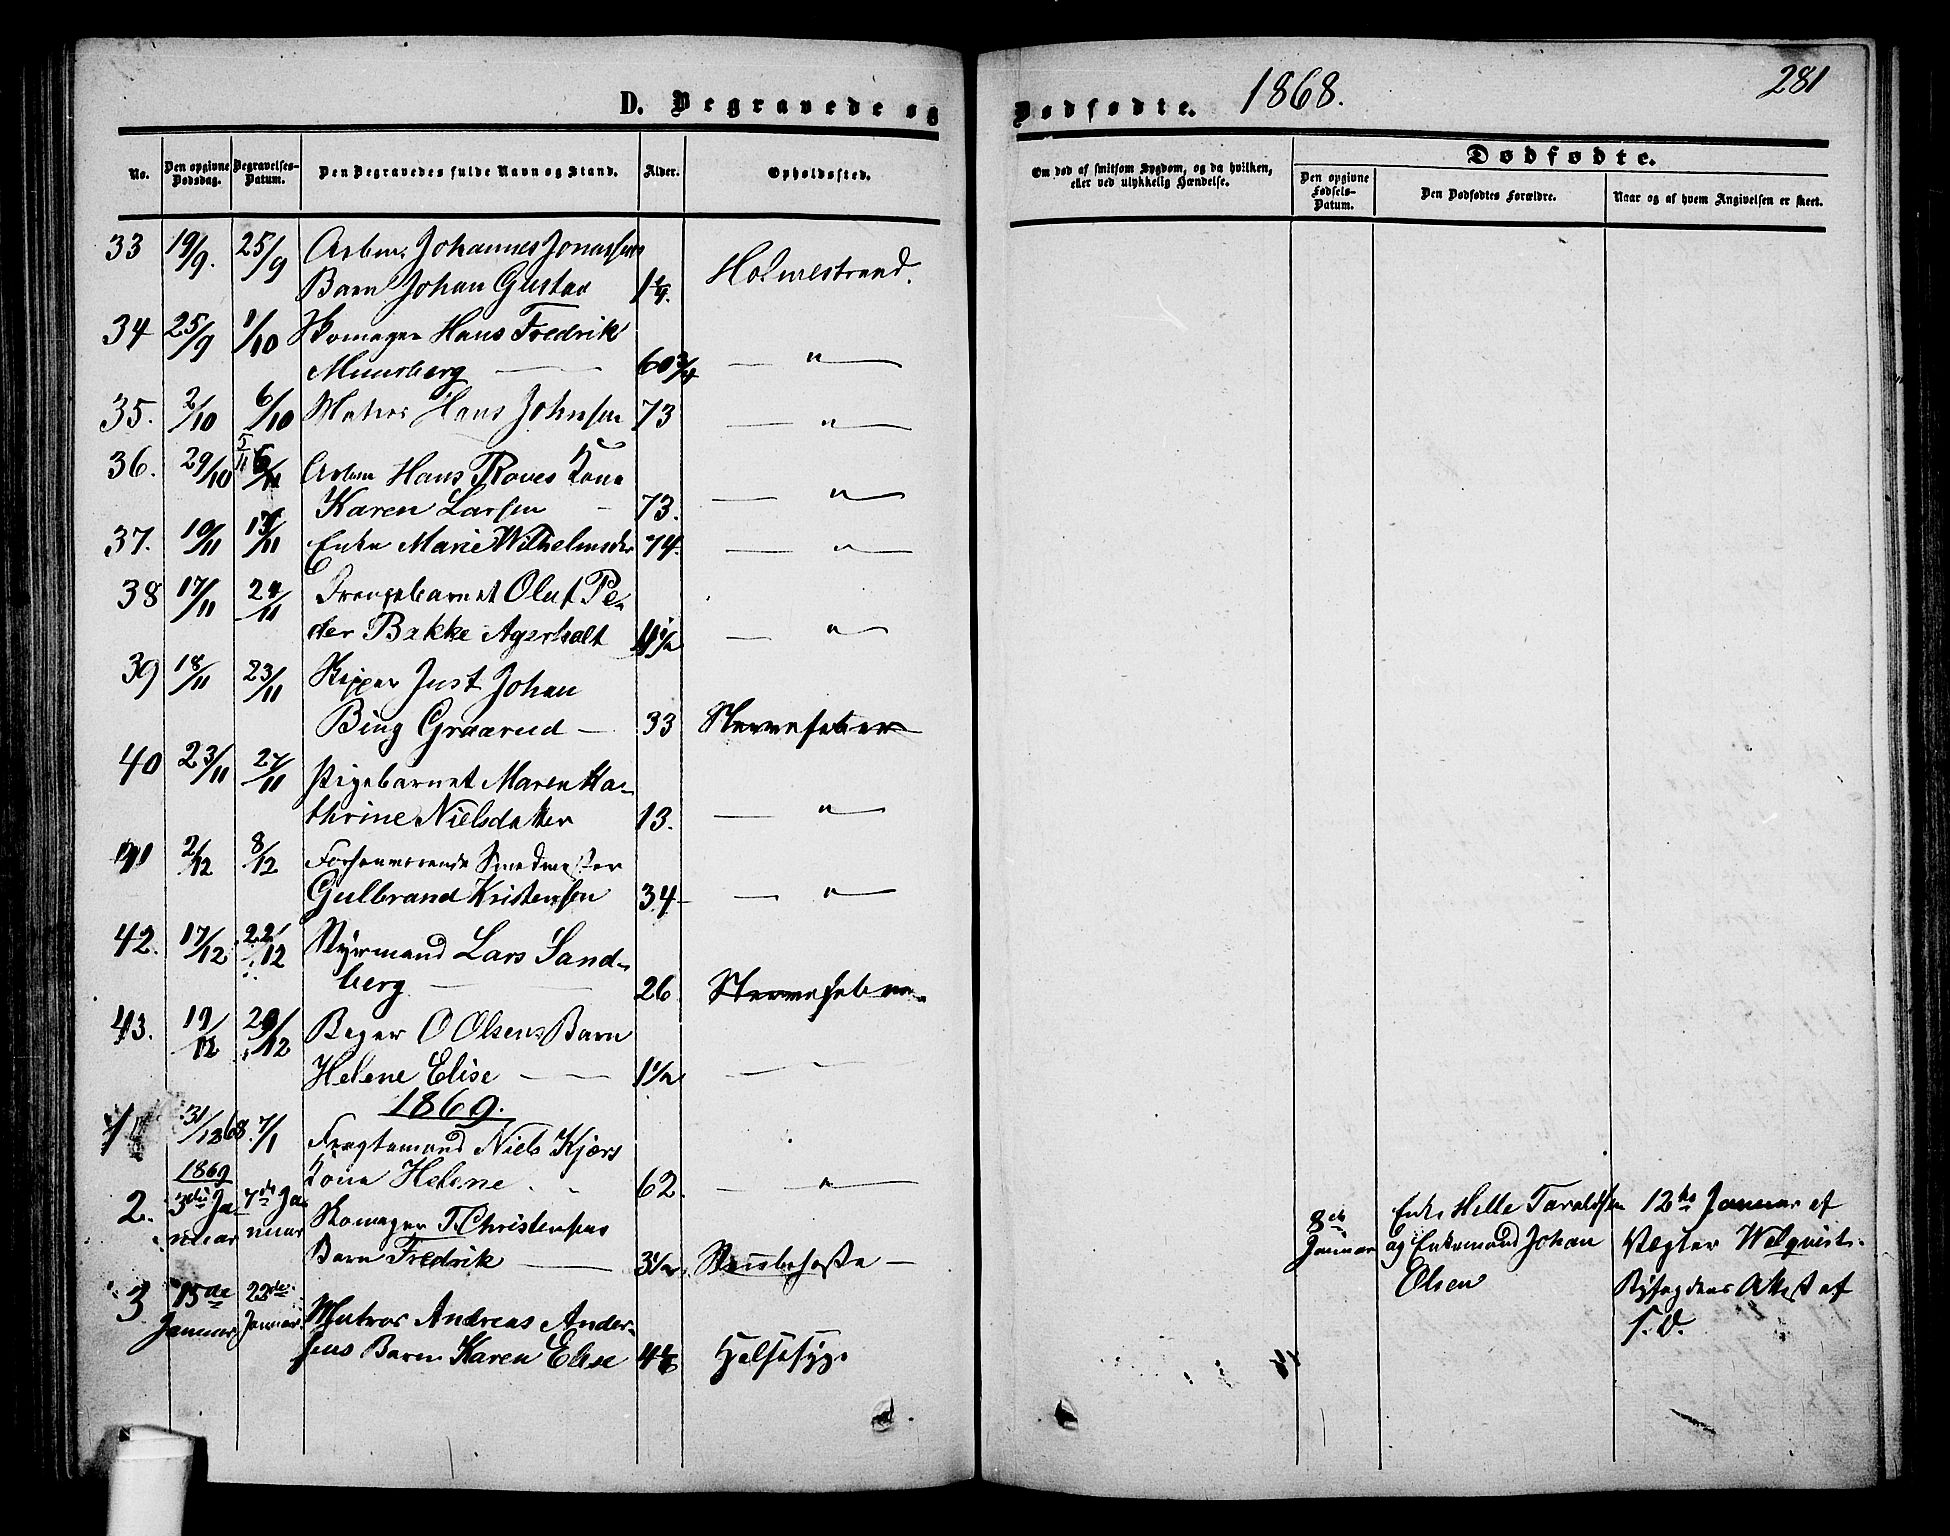 1868. 281
D. Begravede og Dødfødte.
No. Den opgivne Dødsdag. Begravelses-Datum. Den Begravedes fulde Navn og Stand. Alder. Opholdssted.
Om død af smitsom Sygdom, og da hvilken, eller ved ulykkelig Hændelse.
Dødfødte.
Den opgivne Fødsels-Datum. Den Dødfødtes Forældre. Naar og af hvem Angivelsen er skeet.
33 19/9. 25/9 Arbm. Johannes Jonassens
Barn Johan Gustav Holmestrand.
34 25/9 1/10 Skomager Hans Fredrik
60 3/4 — " —
35. 2/10 6/10 Matros Hans Johnsen 73 — " —
36. 29/10 5/11 6/11 Arbm Hans Roves Kone
Karen Larsen — 73. — " —
37. 10/11 13/11 Enke Marie Wilhelmsdr 74 — " —
38 17/11 24/11 Drengebarnet Oluf Pe-
der Bakke Agerholt — " —
39 18/11 23/11 Skipper Just Johan
Bing Graarud — 33
40 23/11 27/11 Pigebarnet Maren Ka-
thrine Nielsdatter 13. — " —
41 2/12 8/12 Forhenværende Smedmester
Gulbrand Kristensen 34 — " —
42. 17/12 22/12 Styrmand Lars Sand-
berg — 26
43. 19/12 29/12 Bager O Olsens Barn
Helene Elise — 1 1/2 — —
1869.
1 31/12 68. 7/1 Fragtemand Niels Kjærs
Kone Helene 62. — " —
1869
2. 3die Ja- 7de Ja- Skomager T. Christensens
nuar nuar Barn Fredrik — 3 1/2
8de Januar Enke Helle Taraldsen
og Enkemand Johan
Olsen
12te Januar af
Vægter Welqvist.
af
S. D.
3 15de 22de
Januar Januar. Matros Andreas Ander-
sens Barn Karen Elise Halssyge